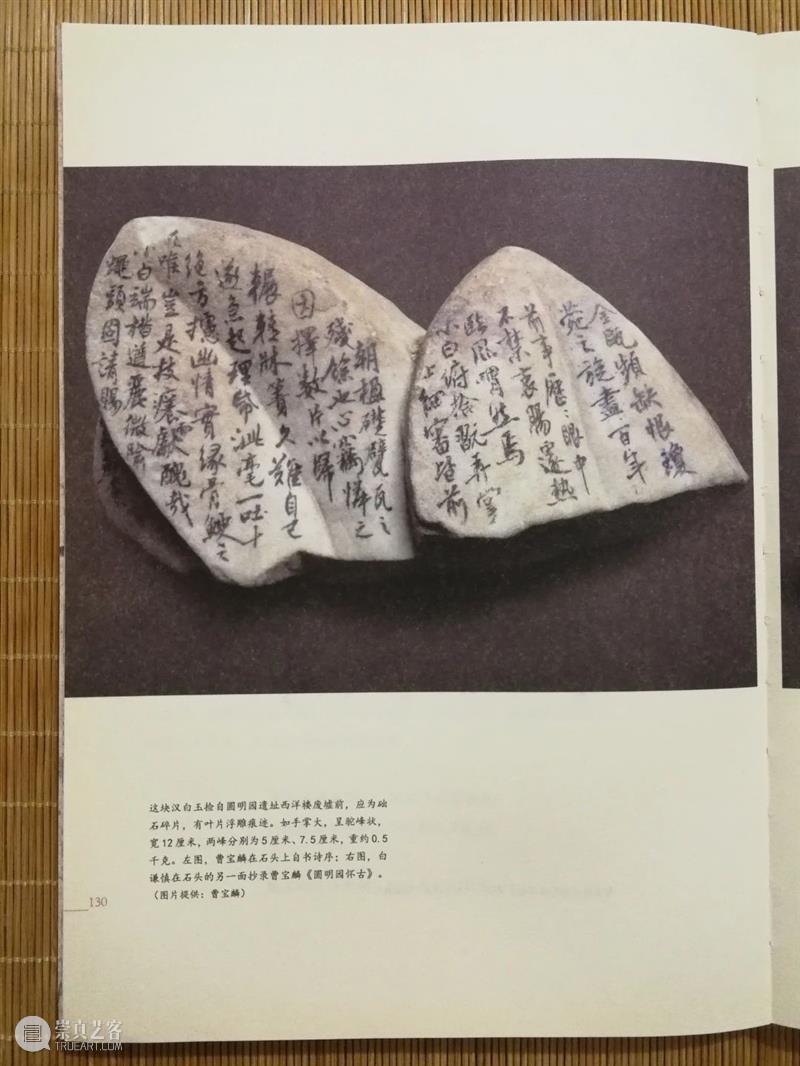 金甌頻缺恨瓊
苑之旋盡百年
前事歷々眼中
不禁哀腸遽熱
臨風喟然焉
小白俯拾翫弄掌
上細審階前
朝楹礎甓瓦之
殘餘也心竊憐之
因擇數片以歸
輾轉牀簀久難自已
遂急起理泚毫一吐十
絕方攄幽情實緣骨鯁之
豈是技癢而獻醜哉
小白端楷遒麗微
蠅頭固請賜
这块汉白玉捡自圆明园遗址西洋楼废墟前，应为础
石碎片，有叶片浮雕痕迹。如手掌大，呈驼峰状，
宽12厘米，两峰分别为5厘米、7.5厘米，重约0.5
千克。左图，曹宝麟在石头上自书诗序；右图，白
谦慎在石头的另一面抄录曹宝麟《圆明园怀古》。
（图片提供：曹宝麟）
130
崇真艺客
TRUEART.COM